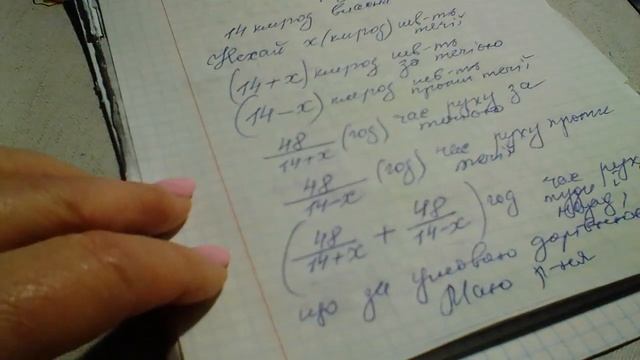 14 км/год власна
Нехай x (км/год) шв-ть течії
(14+x) км/год шв-ть за течією
(14-x) км/год шв-ть проти течії
48/(14+x) (год) час руху за течією
48/(14-x) (год) час руху проти течії
(48/(14+x) + 48/(14-x)) год час руху туди і назад,
що за умовою
Маю р-ня